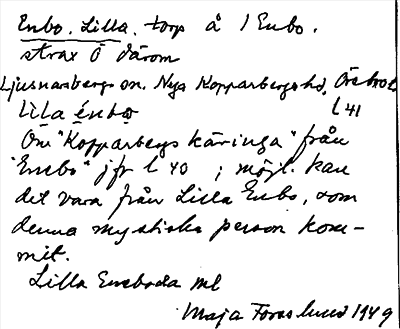 Enbo, Lilla, torp å 1 Enbo,
strax Ö därom
Ljusnarsbergs sn. Nya Kopparbergs hd. Örebro l.
Lila énbo l 41
Om "Kopparbergs käringa" från
"Enebo" jfr l 40 ; möjl. kan
det vara från Lilla Enbo, som
denna mystiska person kom-
mit.
Lilla Eneboda ml
Maja Forsslund 1949